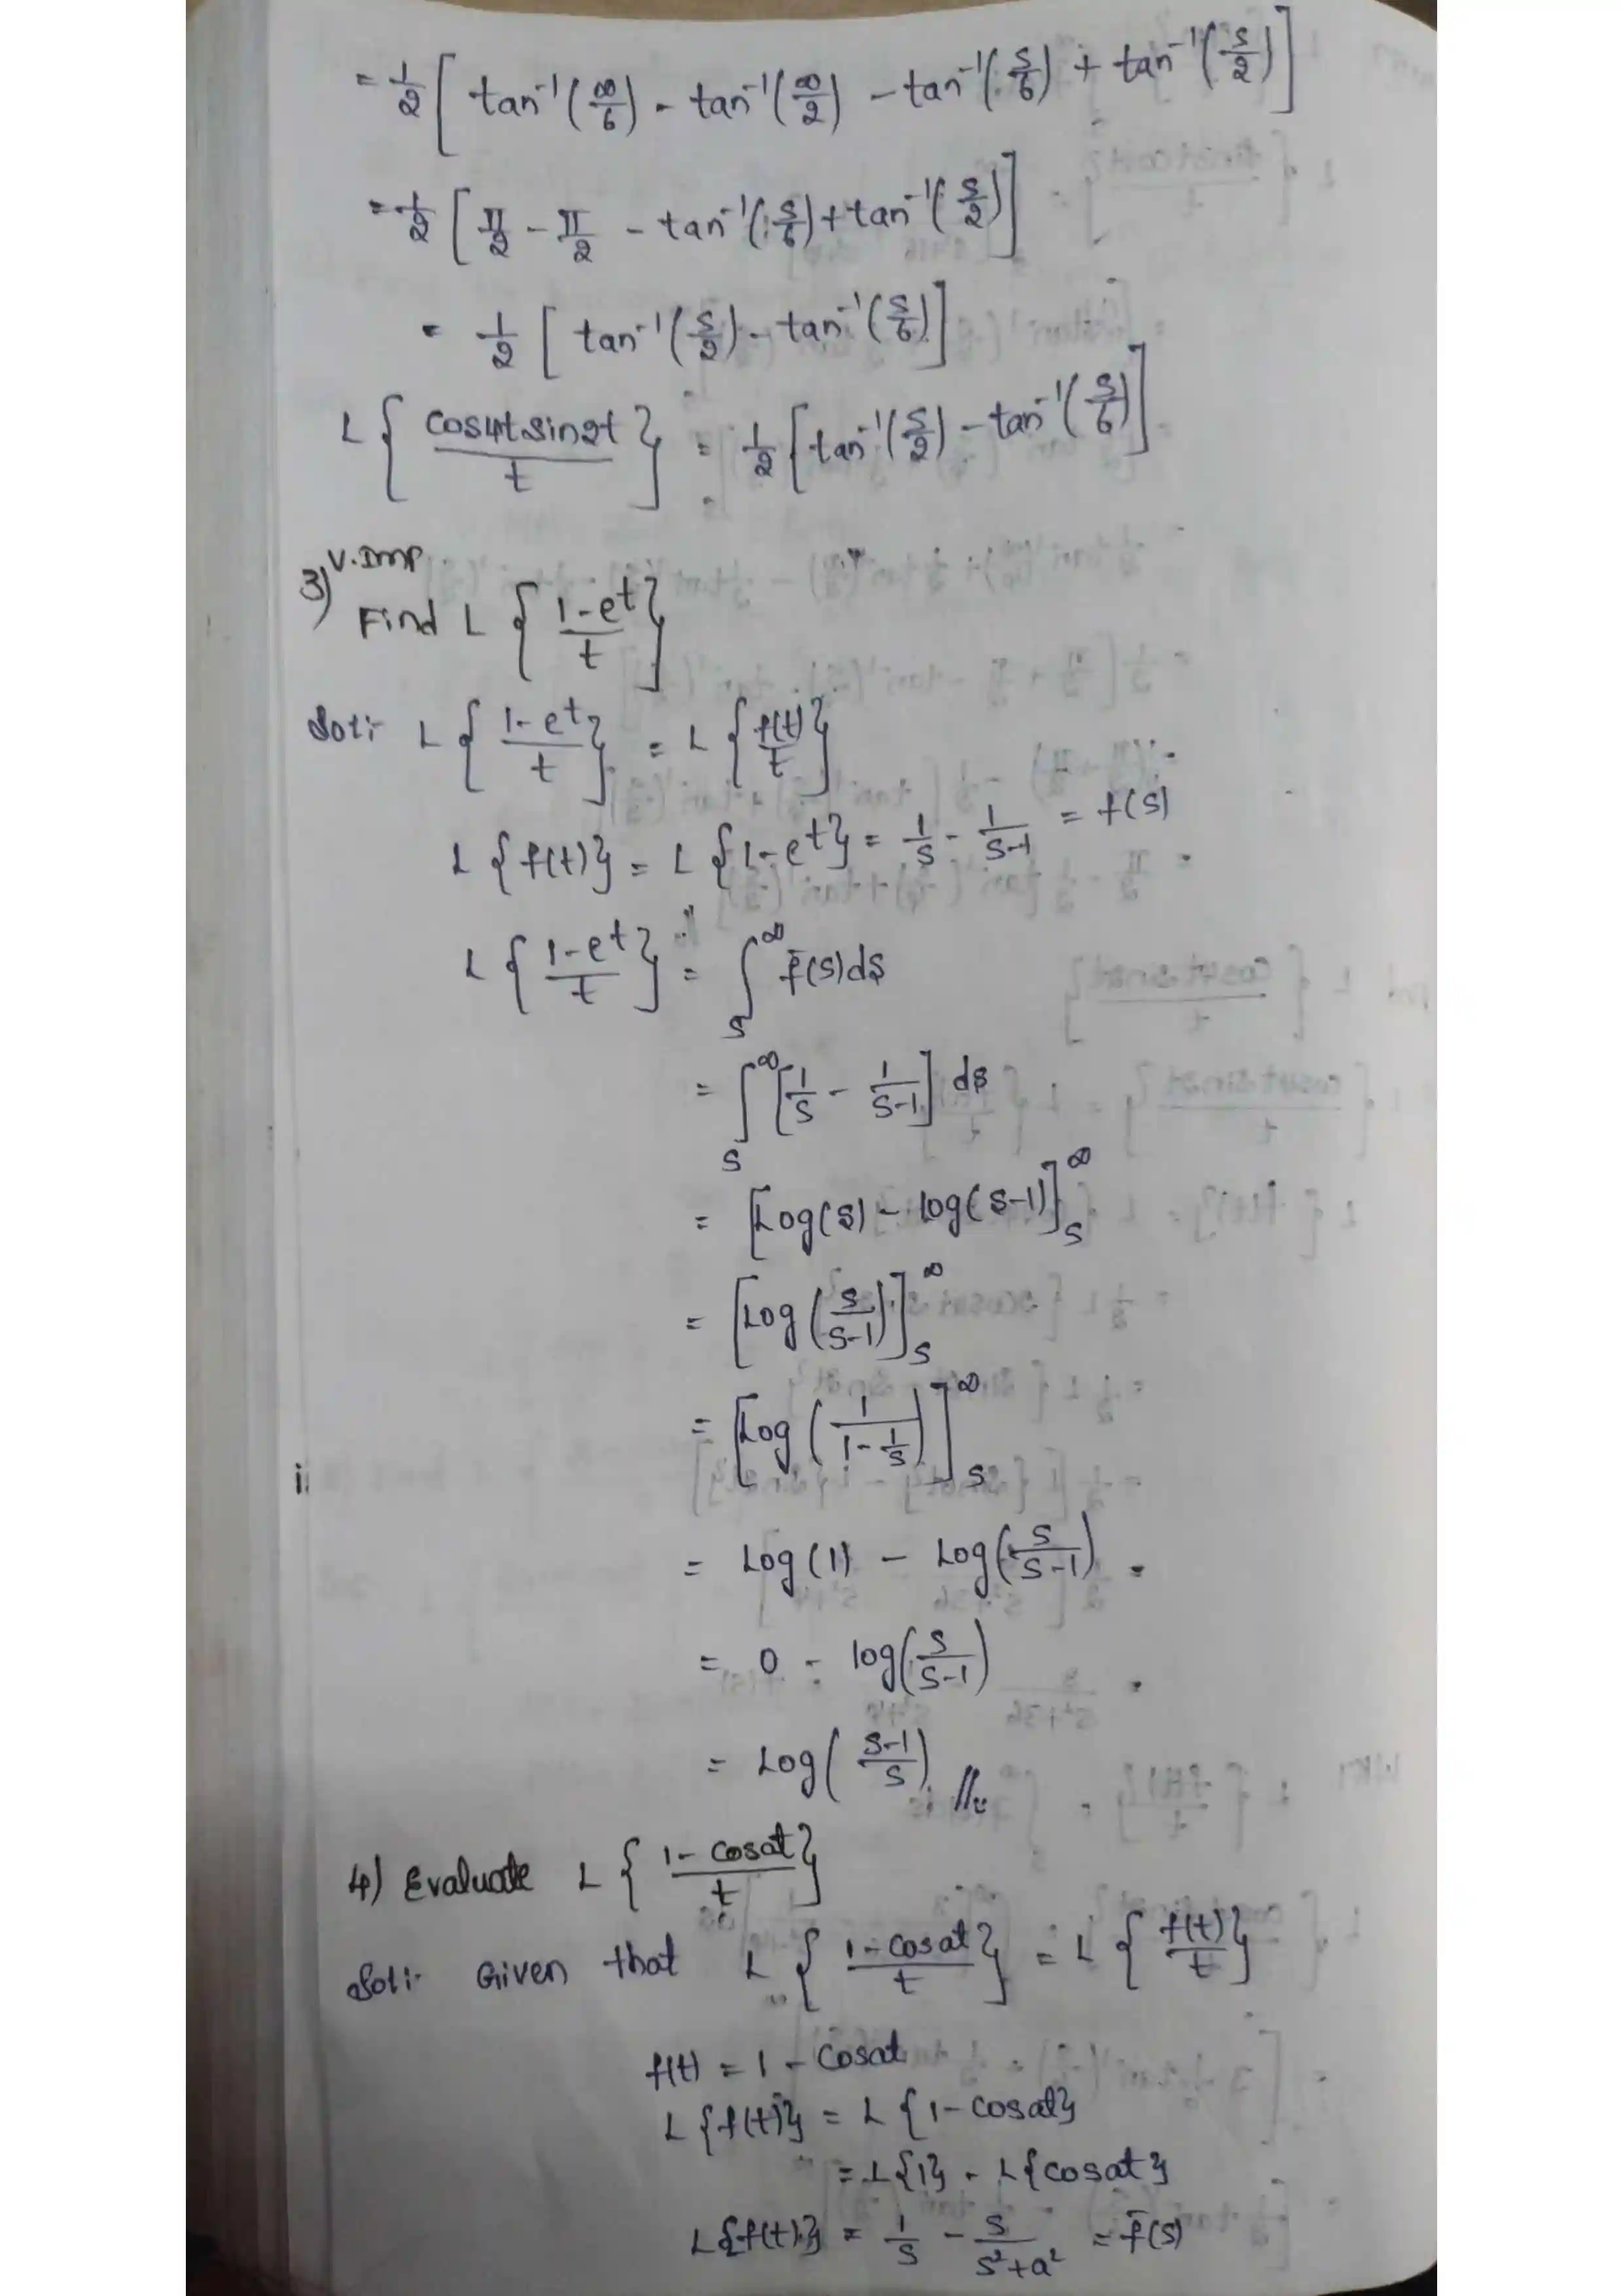 = 1/2 [ tan⁻¹(∞/6) - tan⁻¹(∞/2) - tan⁻¹(s/6) + tan⁻¹(s/2) ]
= 1/2 [ π/2 - π/2 - tan⁻¹(s/6) + tan⁻¹(s/2) ]
= 1/2 [ tan⁻¹(s/2) - tan⁻¹(s/6) ]
L { cos4t sin2t / t } = 1/2 [ tan⁻¹(s/2) - tan⁻¹(s/6) ]
V.Imp
3) Find L { 1-e^t / t }
Sol:- L { 1-e^t / t } = L { f(t) / t }
L {f(t)} = L {1-e^t} = 1/s - 1/s-1 = f(s)
L { 1-e^t / t } = ∫_s^∞ f̄(s) ds
= ∫_s^∞ [ 1/s - 1/s-1 ] ds
= [Log(s) - log(s-1)]_s^∞
= [Log (s/s-1)]_s^∞
= [Log ( 1 / 1 - 1/s )]_s^∞
= Log(1) - Log(s/s-1)
= 0 - log(s/s-1)
= Log( s-1/s ) //
4) Evaluate L { 1 - cosat / t }
Sol:- Given that L { 1 - cosat / t } = L { f(t) / t }
f(t) = 1 - cosat
L {f(t)} = L {1 - cosat}
= L{1} - L{cosat}
L{f(t)} = 1/s - s/s²+a² = f̄(s)